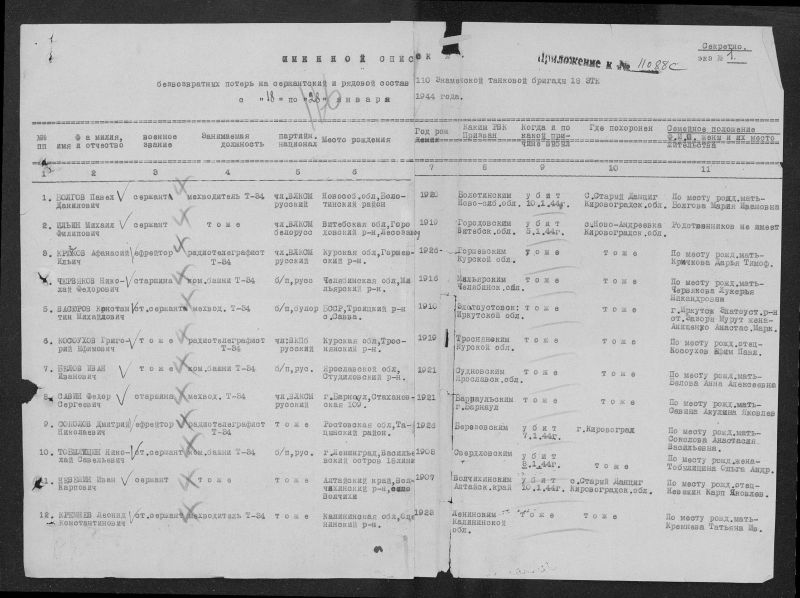 Секретно.
экз № 1.
Приложение к № 11088с
ИМЕННОЙ СПИСОК №
безвозвратных потерь на сержантский и рядовой состав 110 Знаменской танковой бригады 18 ЭТК
с "18" по "28" января 1944 года.
№№ пп
Фамилия, имя и отчество
военное звание
Занимаемая должность
партийн. национал
Место рождения
Год рождения
Каким РВК Призван
Когда и по какой причине выбыл
Где похоронен
Семейное положение Ф.И.О. жены и их место жительства
1 2 3 4 5 6 7 8 9 10 11
1. ВОЛГОВ Павел сержант мехводитель Т-34 чл.ВЛКСМ Новосиб.обл,Боло- 1920 Болотинским убит С.Старый Данциг По месту рожд.мать-
Данилович русский тинский район Ново-сиб.обл. 10.1.44г. Кировоградск.обл. Волгова Мария
2. ИЛЬИН Михаил сержант тоже чл.ВЛКСМ Витебская обл,Горо 1919 Городовским убит с.Ново-Андреевка Родственников не имеет
Филипович белорус довский р-н, Витебск.обл. 5.1.44г. Кировоградск.обл.
3. Афанасий ефрейтор радиотелеграфист чл.ВЛКСМ Курская обл, 1926 тоже тоже По месту рожд.мать-
Ильич Т-34 русский ский р-н. Курской обл. Дарья Тимоф.
4. ЧЕРВЯКОВ Нико- старшина ком.башни Т-34 б/п,русс Челябинская обл, 1916 тоже тоже По месту рожд.мать-
лай Федорович р-н. Челябинск.обл. Червякова Лукерья
Никандровна
5. Констан ст.сержант мехвод. Т-34 б/п, БССР,Троицкий р-н 1910 тоже тоже г.Иркутск
тин Михайлович Иркутской обл. жена-
Анищенко Анастас.Марк.
6. КОСОУХОВ Григо- тоже радиотелеграфист Курская обл, 1919 Троснянским тоже тоже По месту рожд.отец-
рий Ефимович Т-34 русский нянский р-н. Курской обл. Косоухов Ефим Павл.
7. БЕЛОВ ИВАН тоже ком.башни Т-34 б/п,рус. Ярославской обл, 1921 тоже тоже По месту рожд.мать-
Иванович р-н. Ярославск.обл. Белова Анна Алексеевна
8. САВИН Федор старшина мехвод. Т-34 чл.ВЛКСМ г.Барнаул,Стаханов- 1921 Барнаульским тоже тоже По месту рожд.мать-
Сергеевич русский ская 109. г.Барнаул Савина Акулина Яковлев
9. СОКОЛОВ Дмитрий ефрейтор радиотелеграфист тоже Ростовская обл, 1926 Березовским убит г.Кировоград По месту рожд.мать-
Николаевич Т-34 район. 7.1.44г. Соколова Анастасия
Васильевна.
10. ТОБЫЛИЦИН Нико- ст.сержант ком.башни Т-34 б/п,рус. г.Ленинград,Василье 1908 Свердловским убит По месту рожд.жена-
лай Савельевич вский остров 8.1.44г. тоже Тобылицина Ольга Андр.
11. НЕВЕЖИН Иван сержант тоже тоже Алтайский край,Вол- 1907 Волчихинским убит с.Старый Данциг По месту рожд.отец-
Карпович чихинский р-н,село Алтайск.край 10.1.44г. Кировоградск.обл. Невежин Карп Яковлев.
Волчихи
12. КРЕМНЕВ Леонид ст.сержант мехводитель Т-34 тоже Калининская обл, 1923 Ленинским тоже тоже По месту рожд.мать-
Константинович р-н. Калининской Кремнева Татьяна
обл.